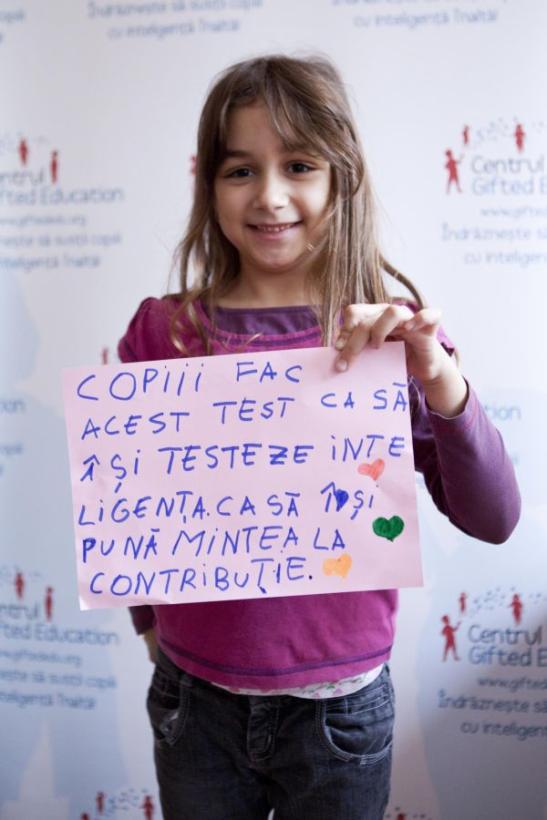 Îndrăznește să susții copii
cu inteligență înaltă!
cu inteligență înaltă!
Centrul
Gifted Education
www.giftededu.org
Îndrăznește să susții copii
cu inteligență înaltă!
Centrul
Gifted E
www.gifted
Îndrăznește să
cu inteligen
COPIIII FAC
ACEST TEST CA SĂ
ÎȘI TESTEZE INTE
LIGENȚA.CA SĂ ÎȘI
PUNĂ MINTEA LA
CONTRIBUȚIE.
Gifted Education
www.giftededu.org
Îndrăznește să susții copii
cu inteligență înaltă!
Centrul
Gifted E
www.gifted
Îndrăznește să
cu inteligen